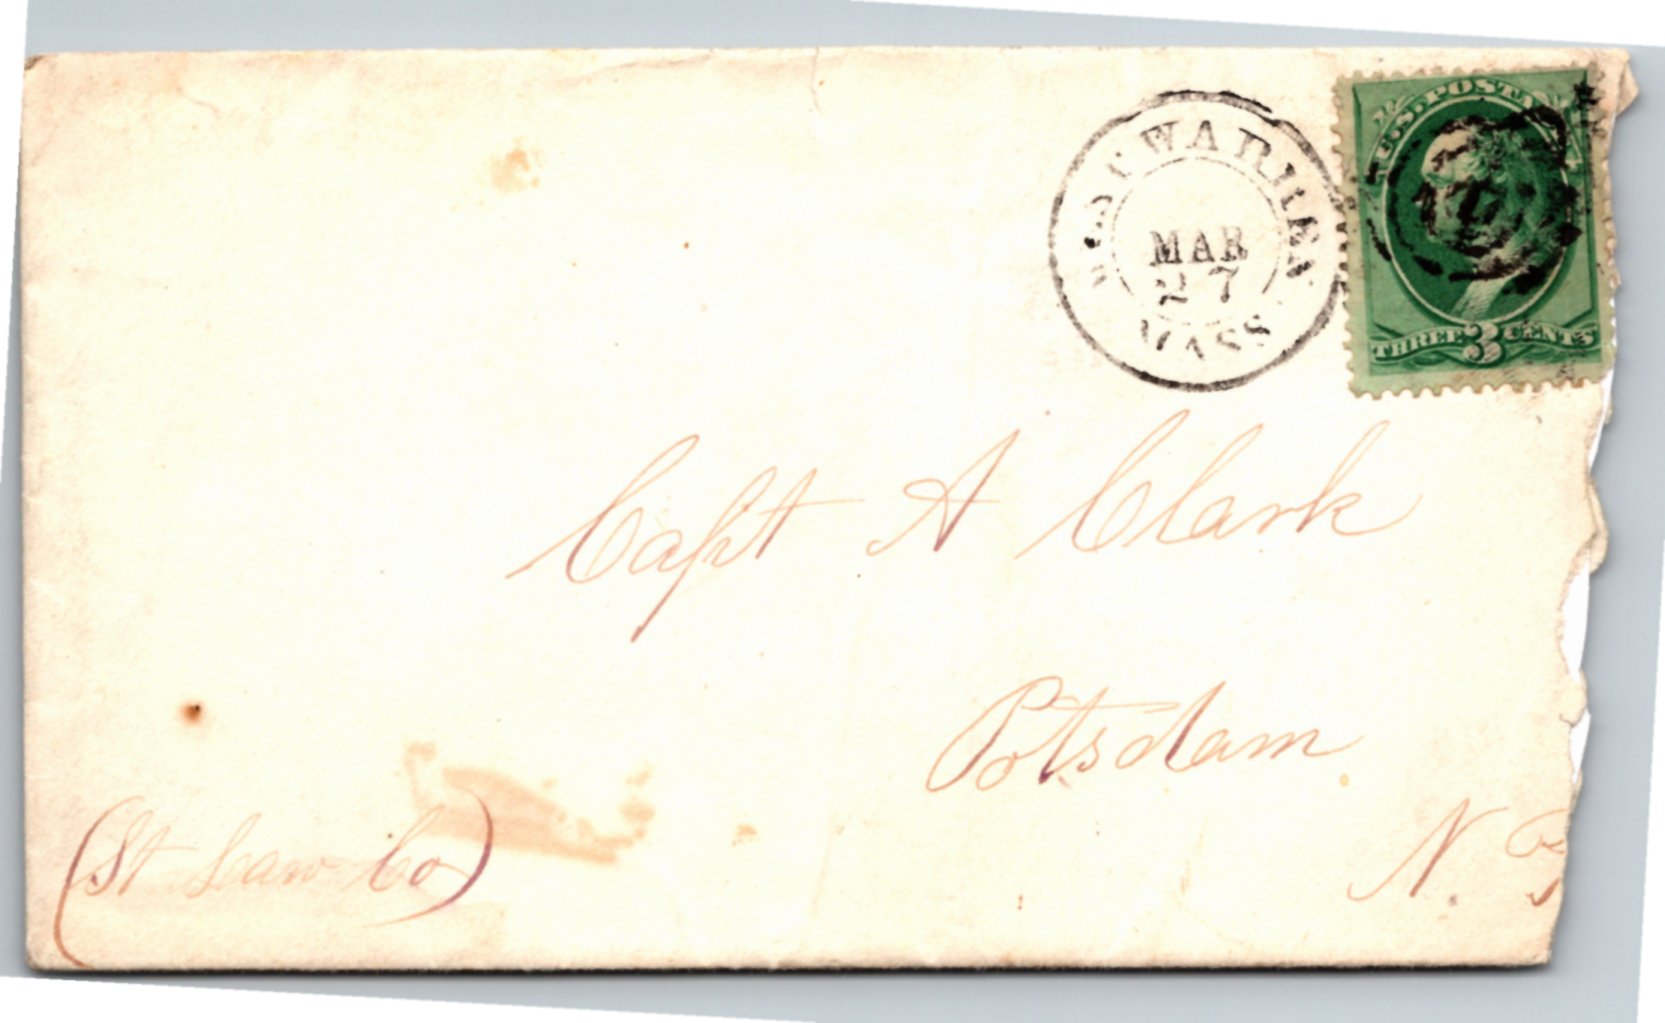 WEST WARREN
MAR
27
MASS
U.S. POSTAGE
THREE 3 CENTS
Capt A Clark
Potsdam
N.
(St Law Co)